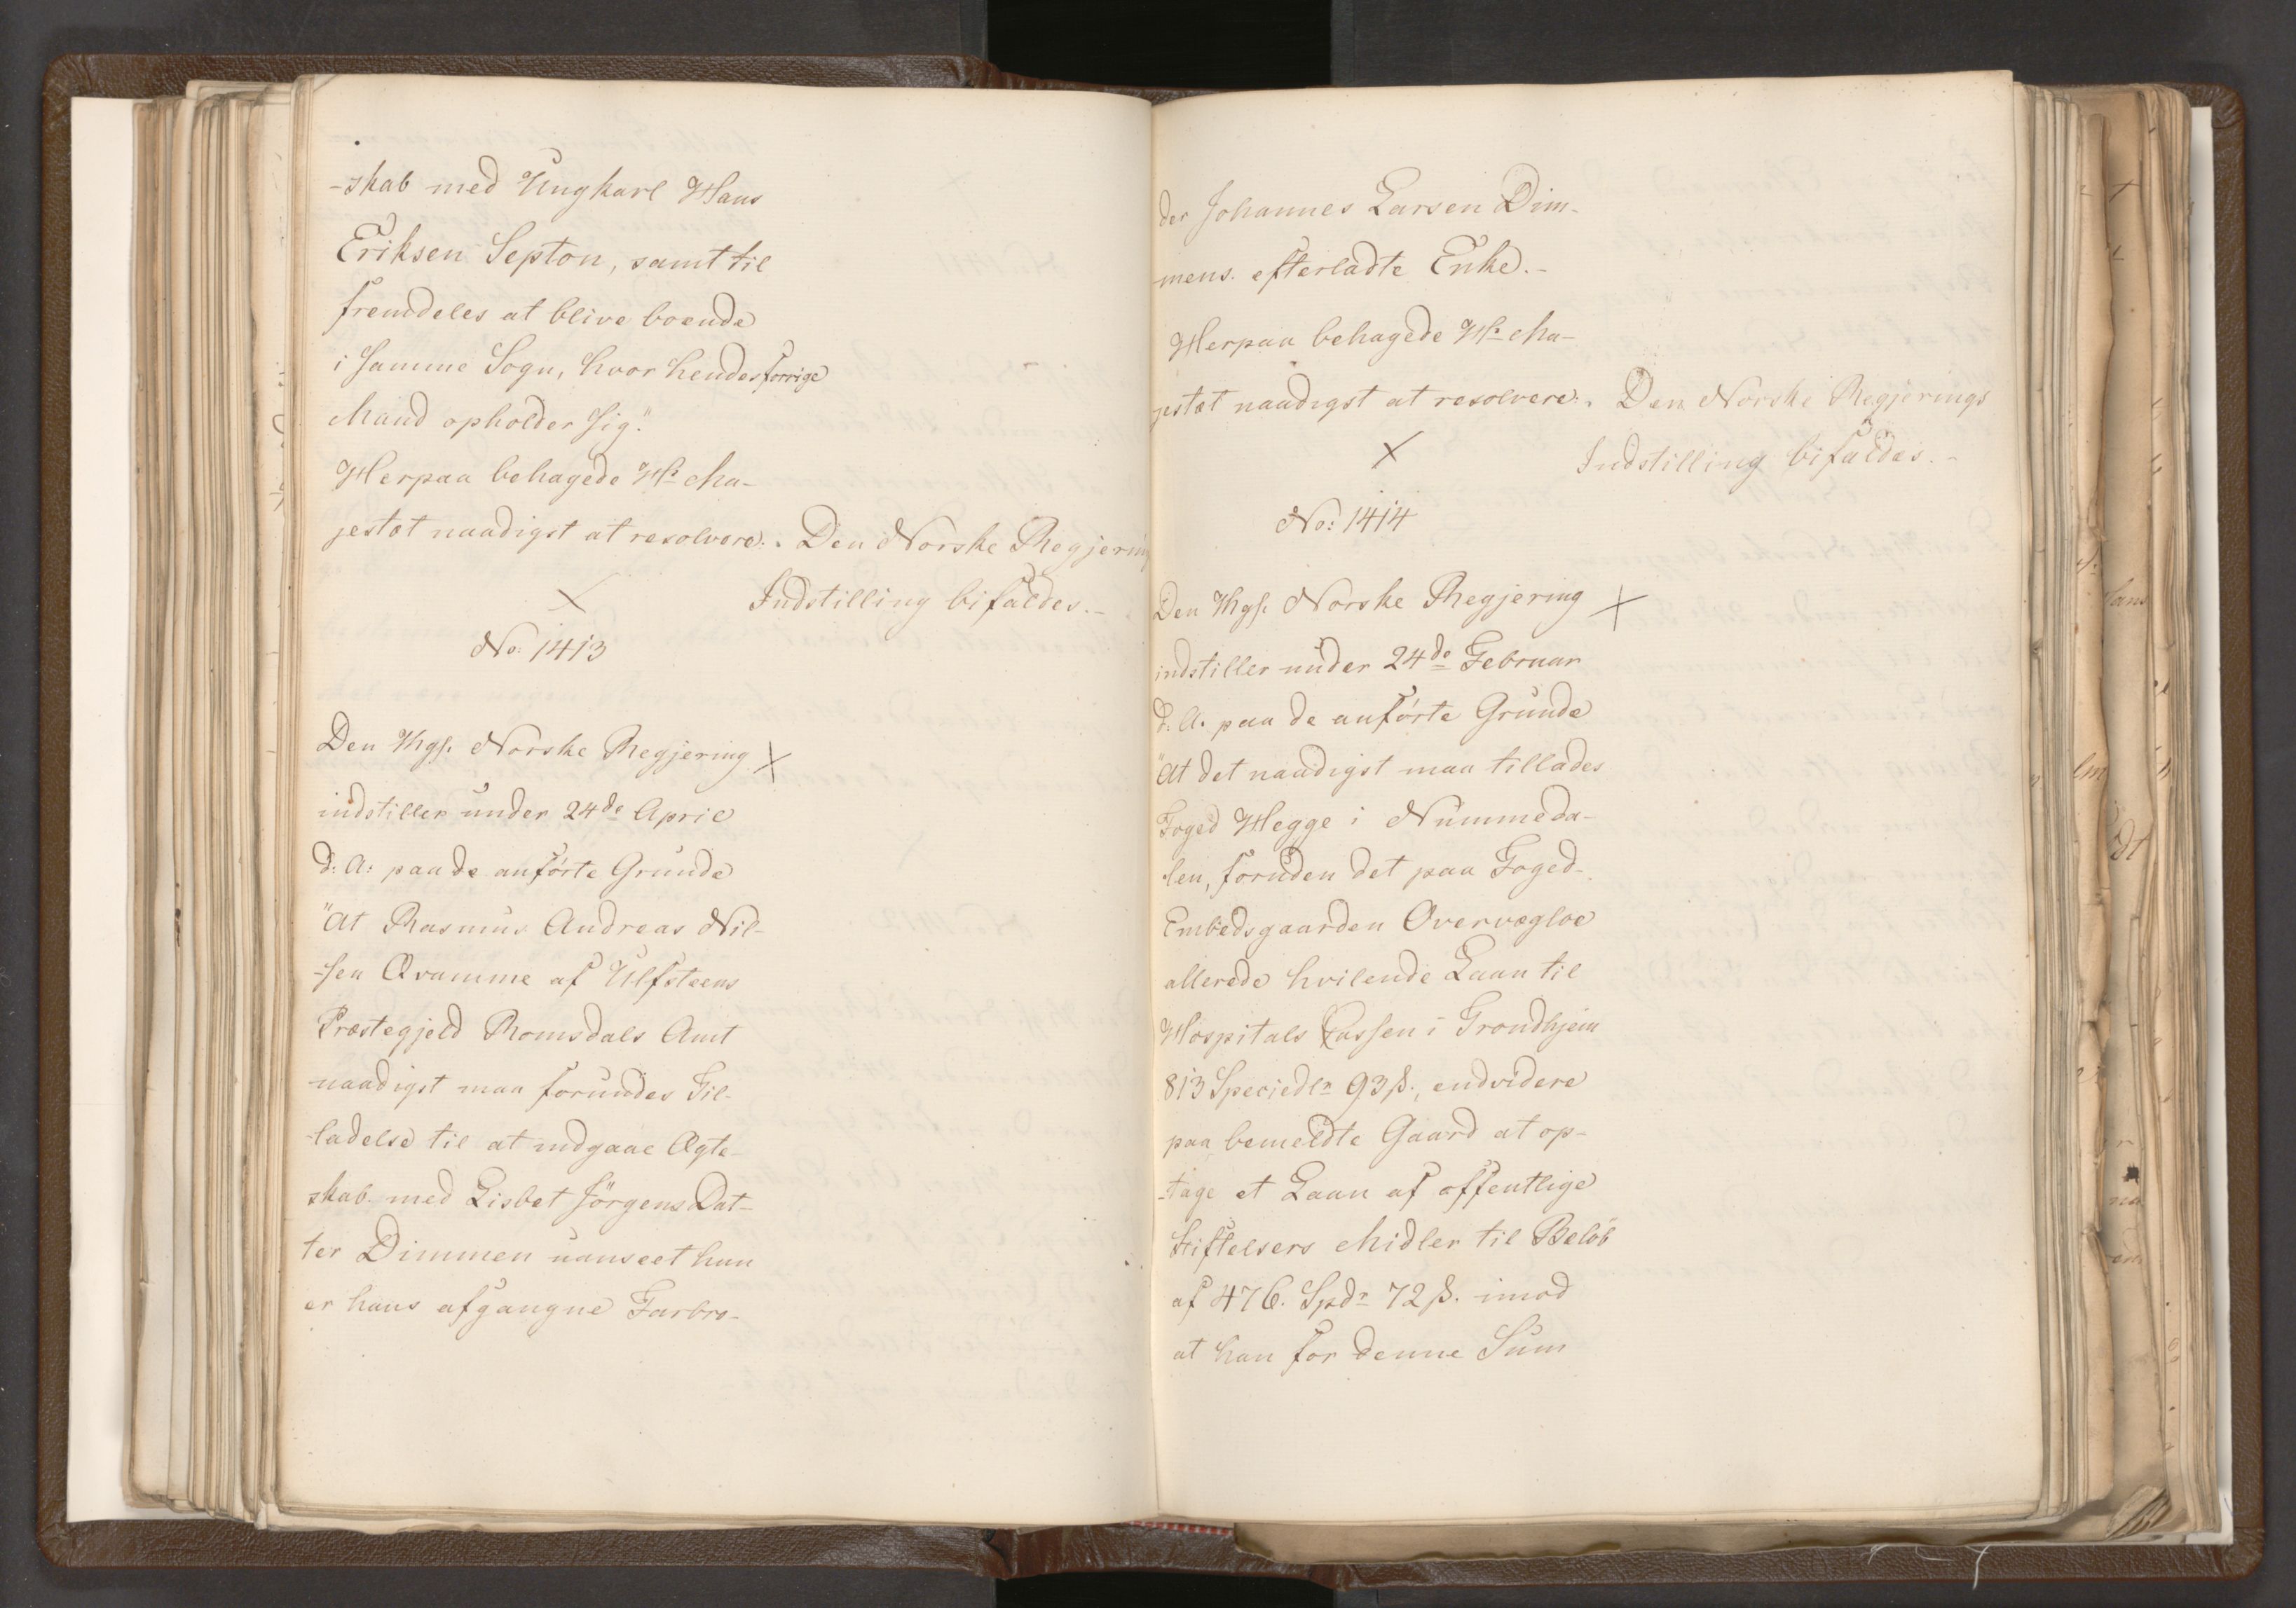 -skab med Ungkarl Hans
Eriksen Septon, samt til
fremdeles at blive boende
i samme Sogn, hvor hendes forrige
Mand opholder sig."
Herpaa behagede Hs Ma-
jestæt naadigst at resolvere:. Den Norske Regjering
Indstilling bifaldes.-
No: 1413
Den Kgs. Norske Regjering
indstiller under 24de April
d: A: paa de anförte Grunde
"At Rasmus Andreas Nil-
-sen Qvamme af Ulfsteens
Præstegjeld Romsdals Amt
naadigst maa forundes Til-
-ladelse til at indgaae Ægte-
skab med Lisbet Jörgens Dat-
ter Dimmen uanseet hun
er hans afgangne Farbro-
der Johannes Larsen Dim-
mens. efterladte Enke.-
Herpaa behagede Hs Ma-
jestæt naadigst at resolvere:. Den Norske Regjerings
Indstilling bifaldes.-
No: 1414
Den Kgs. Norske Regjering
indstiller under 24de Februar
d: A. paa de anförte Grunde
"At det naadigst maa tillades
Foged Hegge i Nummeda-
len, foruden det paa Foged-
Embedsgaarden Overvegloe
allerede hvilende Laan til
Hospitals Cassen i Trondhjem
813 Speciedlr 93 ß., endvidere
paa bemeldte Gaard at op-
-tage et Laan af offentlige
Stiftelsers Midler til Belöb
af 476. Spdr 72 ß. imod
at han for denne Sum